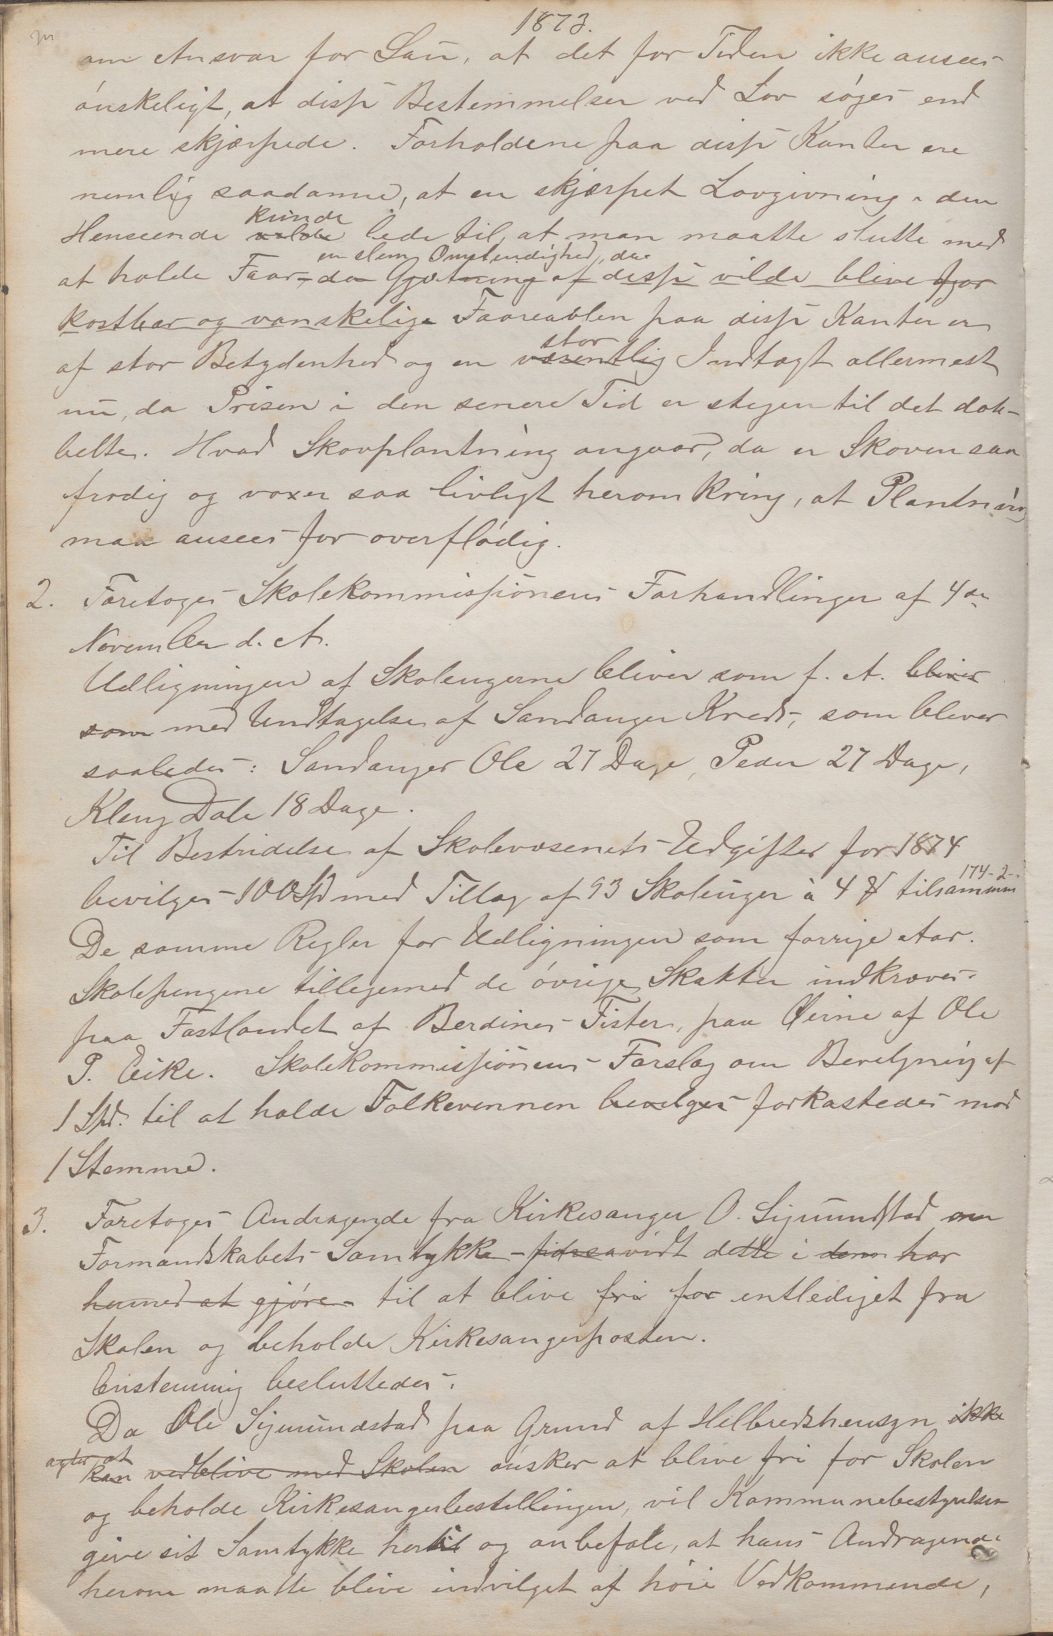 1873.
om Ansvar for Sau, at det for Tiden ikke ansees
ønskeligt, at disse Bestemmelser ved Lov søges end
mere skjærpede. Forholdene paa disse Kanter ere
nemlig saadanne, at en skjærpet Lovgivning i den
kunde
Henseende vilde lede til, at man maatte slutte med
en slem Omstendighed, da
at holde Faar, da Gjætning af disse vilde blive for
kostbar og vanskelig. Faareavlen paa disse Kanter er
stor
af stor Betydenhed og en væsentlig Indtægt allermest
nu, da Prisen i den senere Tid er stegen til det dob-
belte. Hvad Skovplantning angaar, da er Skoven saa
frodig og voxer saa livligt herom kring, at Plantning
maa ansees for overflødig.
2. Foretoges Skolekommissionens Forhandlinger af 4de
November d. A.
Udligningen af Skoleugerne bliver som f. A. bliver
som med Undtagelse af Sandanger Kreds, som bliver
saaledes: Sandanger Ole 27 Dage, Peder 27 Dage,
Kleng Dale 18 Dage.
Til Bestridelse af Skolevæsenets Udgifter for 1874
174-2-
bevilges 100 Spd med Tillæg af 93 Skoleuger à 4 ₰ tilsammen
De samme Regler for Udligningen som forrige Aar.
Skolepengene tilligemed de øvrige Skatter indkræves
paa Fastlandet af Berdines Fister, paa Øerne af Ole
P. Eike. Skolekommissionens Forslag om Bevilgning af
1 Spd. til at holde Folkevennen bevilges forkastedes mod
1 Stemme.
3. Foretoges Andragende fra Kirkesanger O. Sigmundstad om
Formandskabets Samtykke fidsavidt dette i dem har
hermed at gjøre til at blive fri for entlediget fra
Skolen og beholde Kirkesangerposten.
Enstemmig besluttedes:
Da Ole Sigmundstad paa Grund af Helbredshensyn ikke
agter at
kan vedblive med Skolen ønsker at blive fri for Skolen
og beholde Kirkesangerbestillingen, vil Kommunebestyrelsen
give sit Samtykke hertil og anbefale, at hans Andragende
herom maatte blive indvilget af høie Vedkommende,